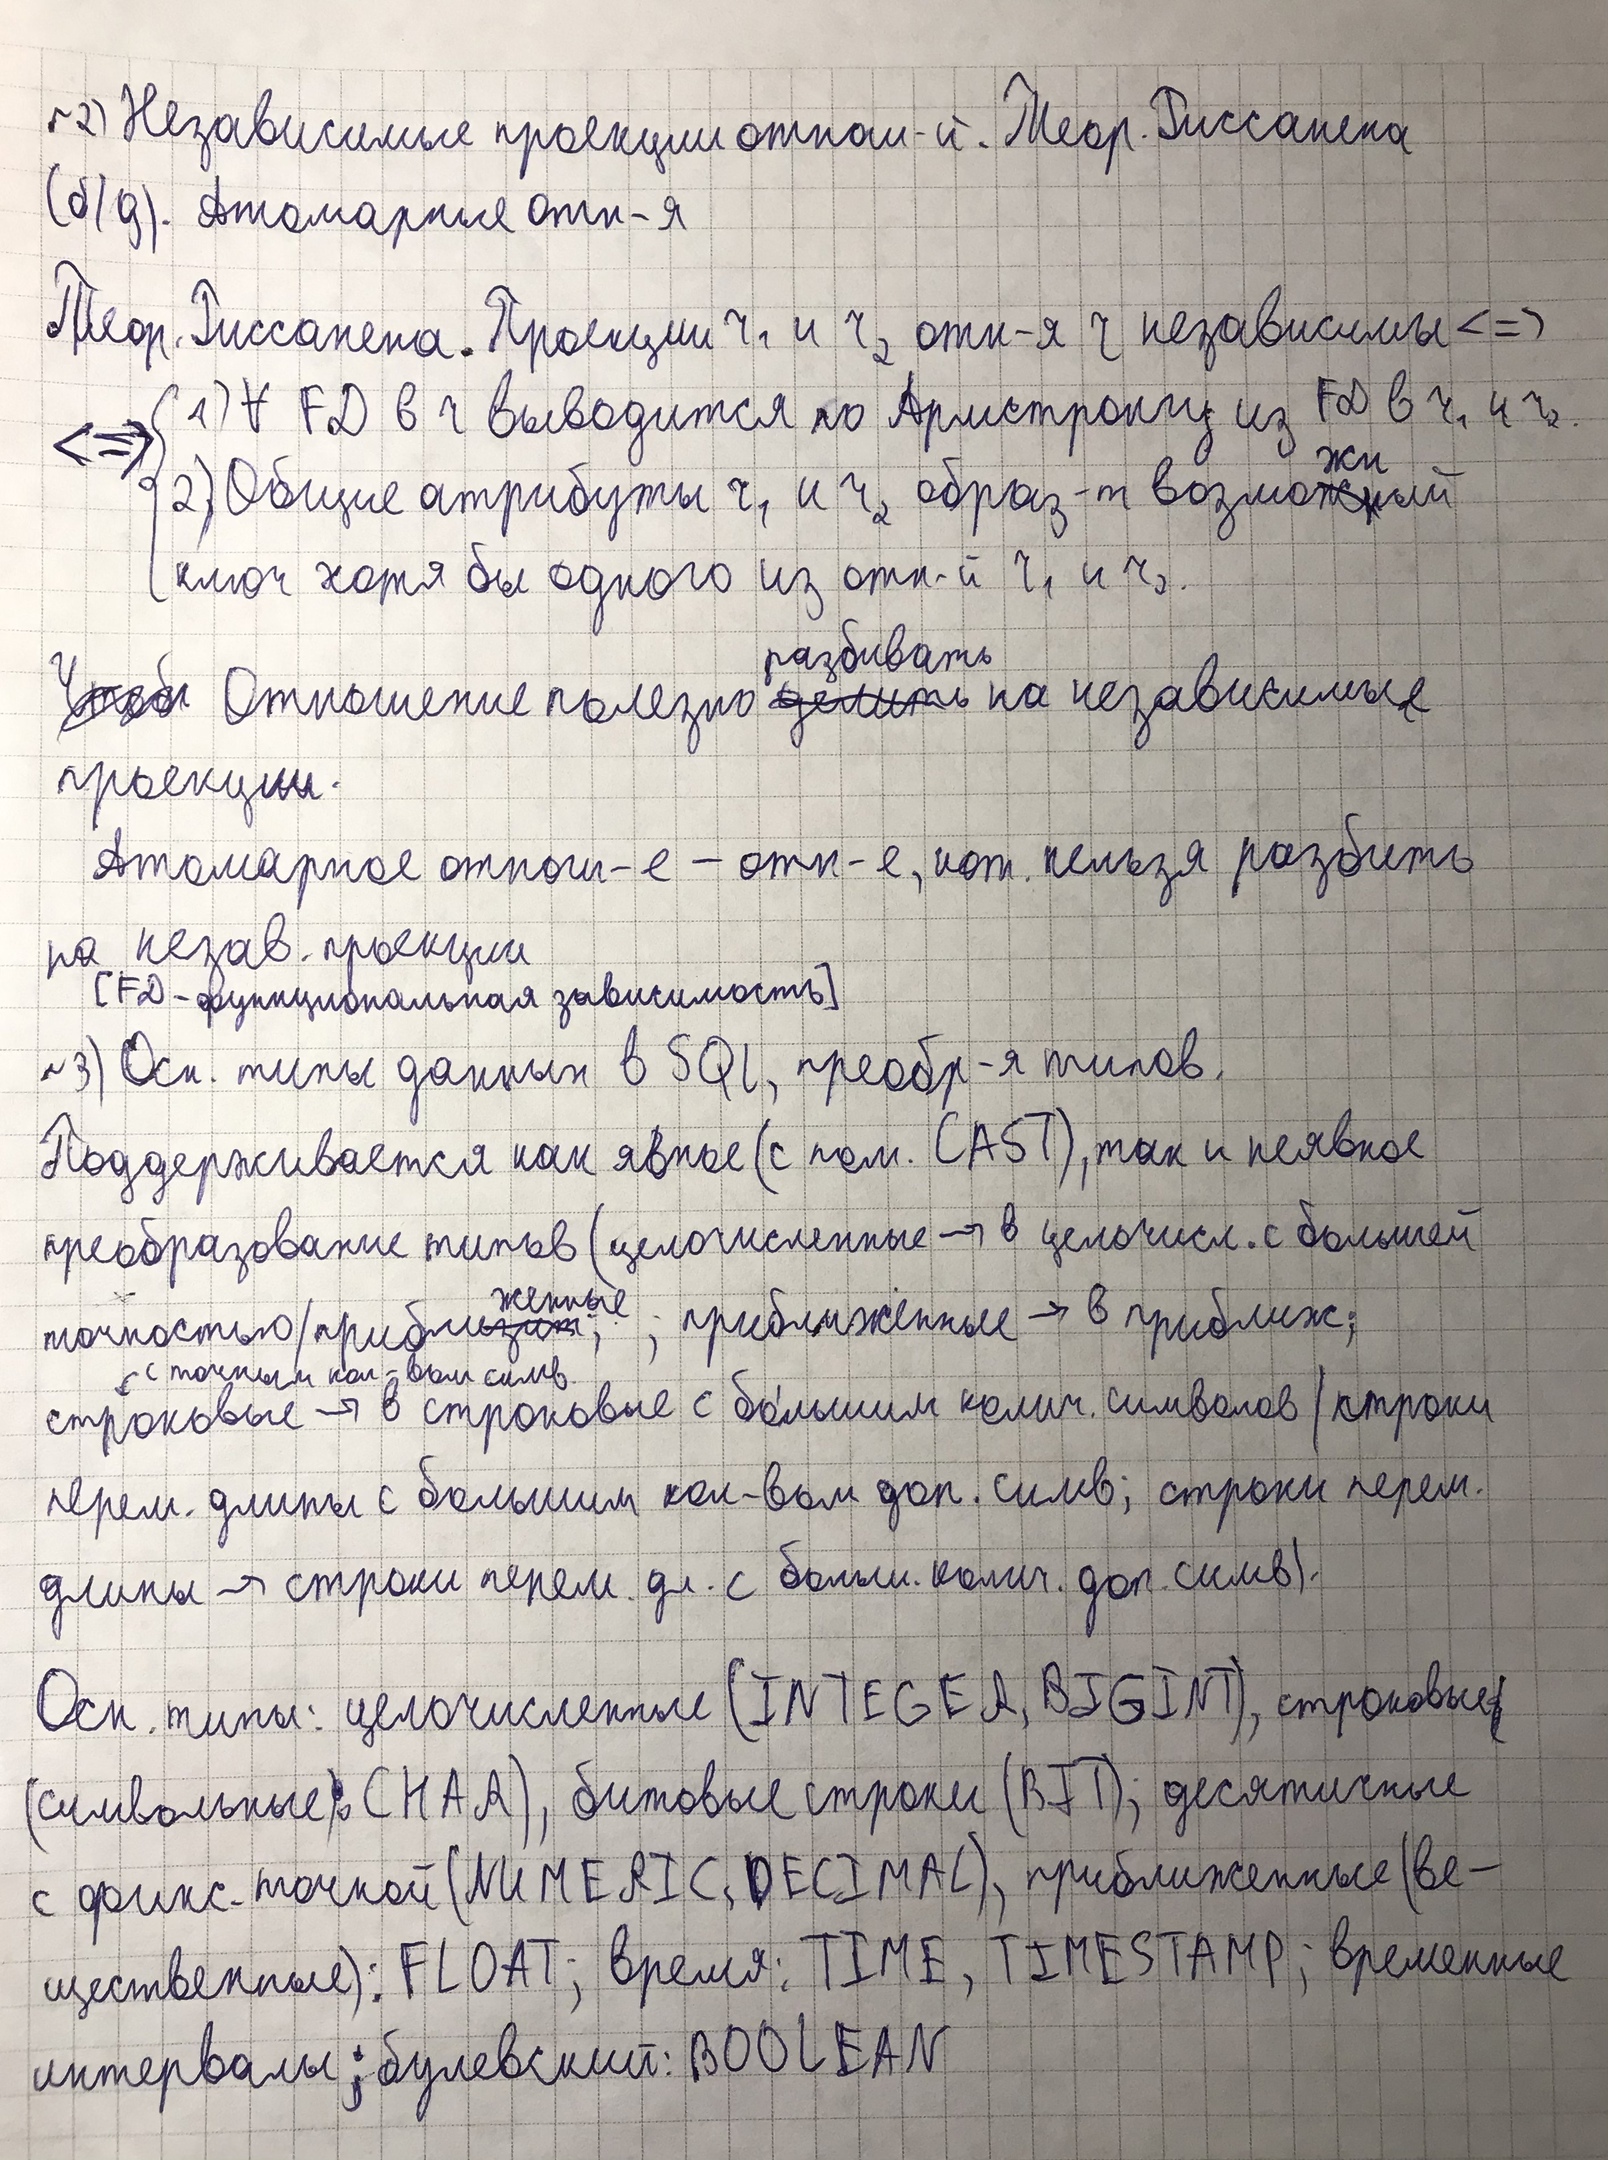 ~2) Независимые проекции отнош-й. Теор. Риссанена
(б/д). Атомарные отн-я
Теор. Риссанена. Проекции r₁ и r₂ отн-я r независимы <=>
<=> { 1) ∀ FD в r выводится по Армстронгу из FD в r₁ и r₂.
2) Общие атрибуты r₁ и r₂ образ-т возможный
ключ хотя бы одного из отн-й r₁ и r₂.
Отношение полезно разбивать на независимые
проекции.
Атомарное отнош-е – отн-е, кот. нельзя разбить
на незав. проекции
[FD - функциональная зависимость]
~3) Осн. типы данных в SQL, преобр-я типов.
Поддерживается как явное (с пом. CAST), так и неявное
преобразование типов (целочисленные → в целочисл. с большей
точностью/приближенные; приближенные → в приближ;
с точным кол-вом симв.
строковые → в строковые с бо́льшим колич. символов / строки
перем. длины с большим кол-вом доп. симв; строки перем.
длины → строки перем. дл. с больш. колич. доп. симв).
Осн. типы: целочисленные (INTEGER, BIGINT), строковые
(символьные: CHAR), битовые строки (BIT); десятичные
с фикс. точкой (NUMERIC, DECIMAL), приближенные (ве-
щественные): FLOAT; время: TIME, TIMESTAMP; временные
интервалы; булевский: BOOLEAN